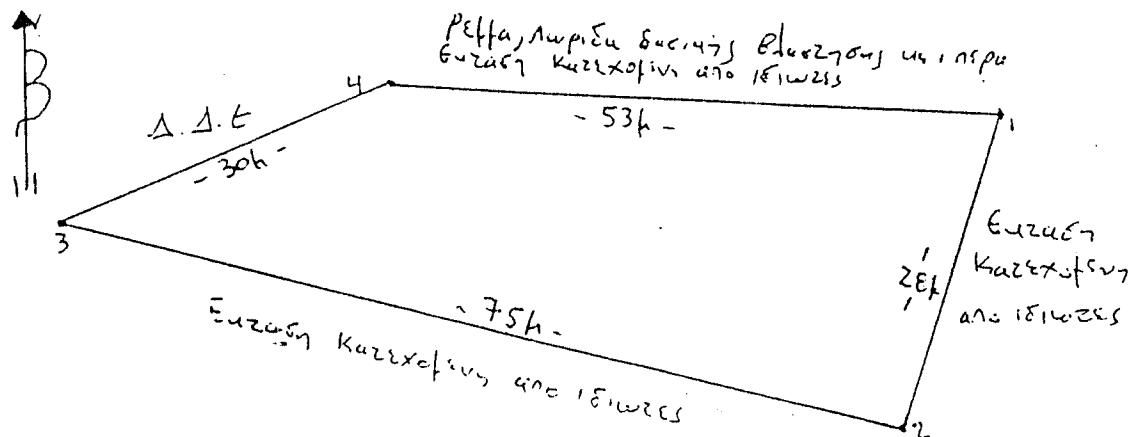 Β
Ρέμμα, Λωρίδα δασικής βλάστησης και πέρα
Εκταση Κατεχομένη απο ιδιωτες
4
- 53μ -
1
Δ.Δ.Ε
- 30μ -
3
Εκταση
Κατεχομένη
απο ιδιωτες
- 75μ -
Εκταση Κατεχομένη απο ιδιωτες
2